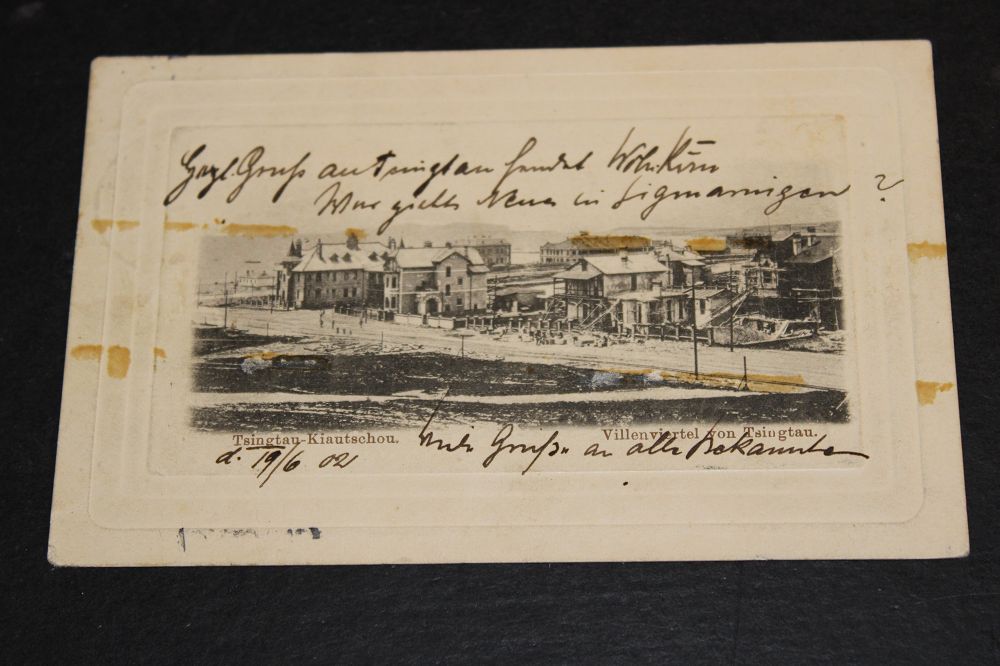 Herzl. Gruß au Tsingtau sendet Wilh. Kurn
Was giebts Neues in Sigmaringen?
Tsingtau-Kiautschou.
Villenviertel von Tsingtau.
d. 19/6 02
Viele Grüße an alle Bekannte